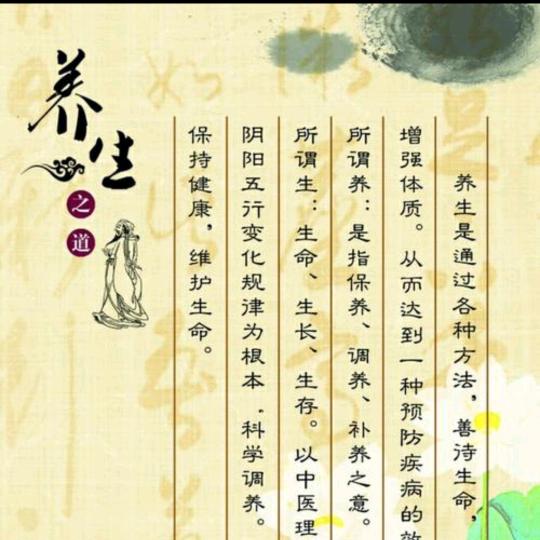 养生
之道
养生是通过各种方法，善待生命，
增强体质。从而达到一种预防疾病的效
所谓养：是指保养、调养、补养之意。
所谓生：生命、生长、生存。以中医理
阴阳五行变化规律为根本．科学调养。
保持健康，维护生命。